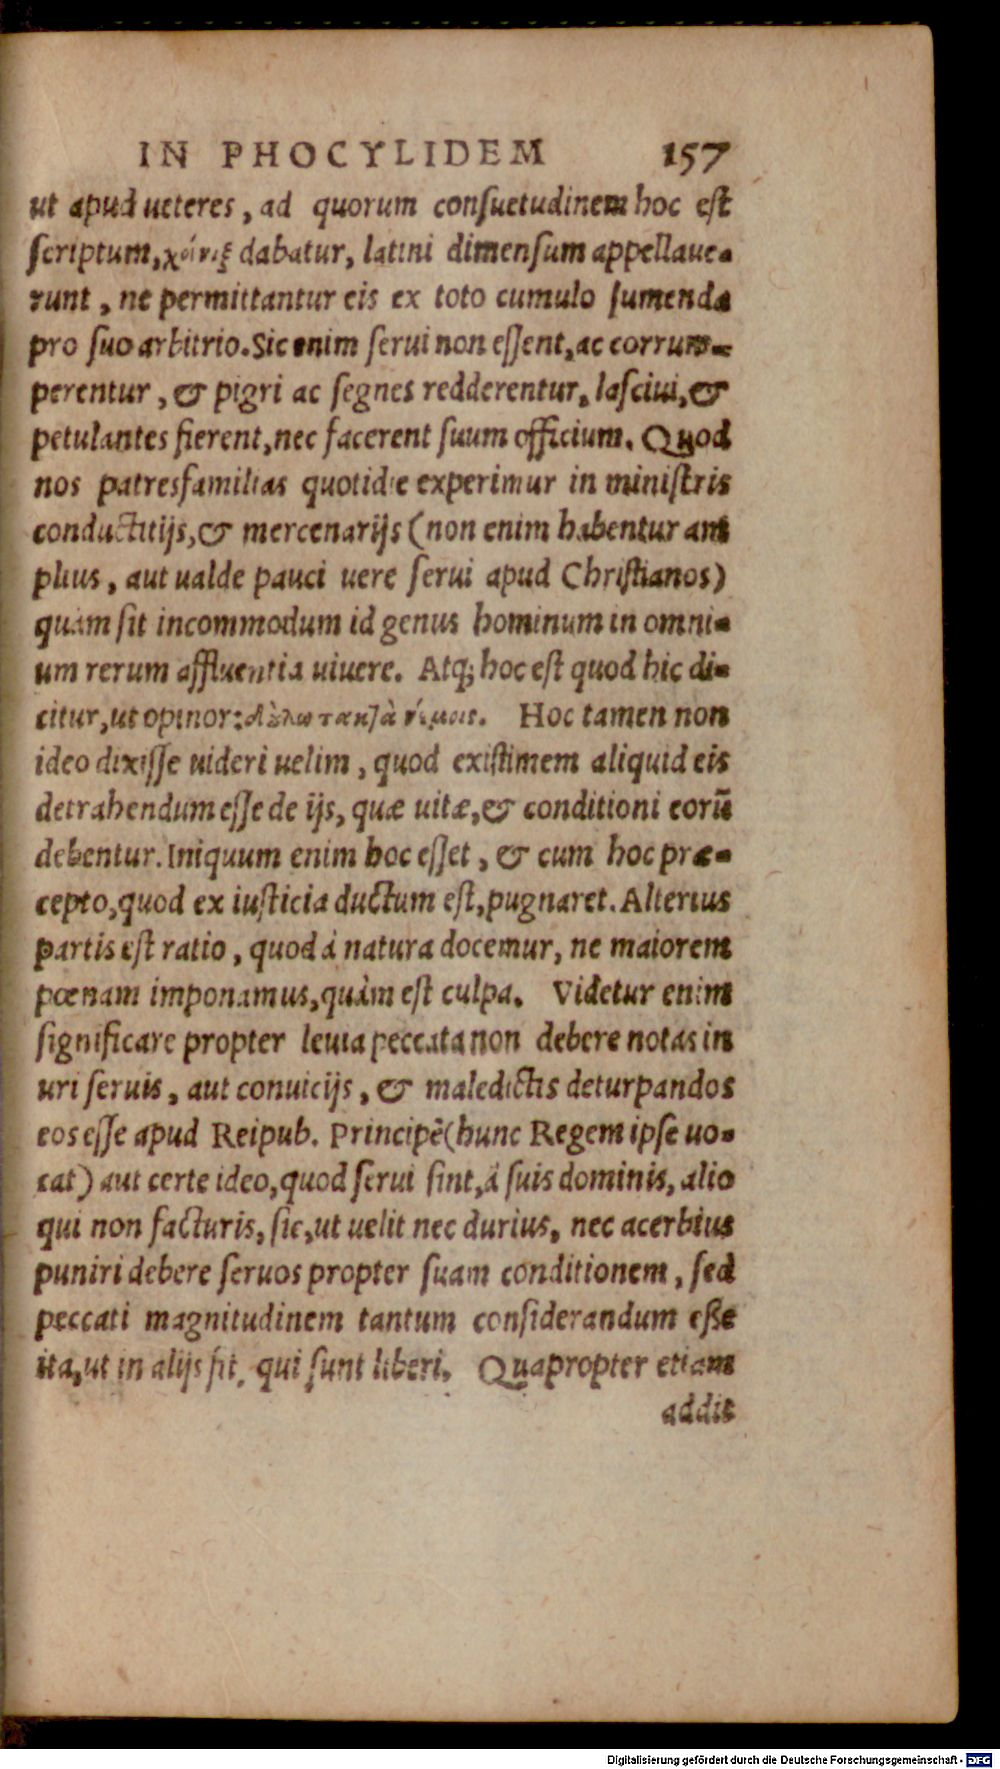 IN PHOCYLIDEM 157
ut apud ueteres, ad quorum consuetudinem hoc est
scriptum, χοίνιξ dabatur, latini dimensum appellaue-
runt, ne permittantur eis ex toto cumulo sumenda
pro suo arbitrio. Sic enim serui non essent, ac corrum-
perentur, & pigri ac segnes redderentur, lasciui, &
petulantes fierent, nec facerent suum officium. Quod
nos patresfamilias quotidie experimur in ministris
conductitijs, & mercenarijs (non enim habentur am
plius, aut ualde pauci uere serui apud Christianos)
quàm sit incommodum id genus hominum in omni-
um rerum affluentia uiuere. Atq; hoc est quod hic di-
citur, ut opinor: Hoc tamen non
ideo dixisse uideri uelim, quod existimem aliquid eis
detrahendum esse de ijs, quæ uitæ, & conditioni eorũ
debentur. Iniquum enim hoc esset, & cum hoc præ-
cepto, quod ex iusticia ductum est, pugnaret. Alterius
partis est ratio, quod à natura docemur, ne maiorem
pœnam imponamus, quàm est culpa. Videtur enim
significare propter leuia peccata non debere notas in
uri seruis, aut conuicijs, & maledictis deturpandos
eos esse apud Reipub. Principẽ (hunc Regem ipse uo-
cat) aut certe ideo, quod serui sint, à suis dominis, alio
qui non facturis, sic, ut uelit nec durius, nec acerbius
puniri debere seruos propter suam conditionem, sed
peccati magnitudinem tantum considerandum eße
ita, ut in alijs fit, qui sunt liberi. Quapropter etiam
addit
Digitalisierung gefördert durch die Deutsche Forschungsgemeinschaft - DFG